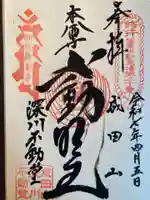 奉拝
成田山
令和七年四月五日
本尊
不動明王
深川不動堂